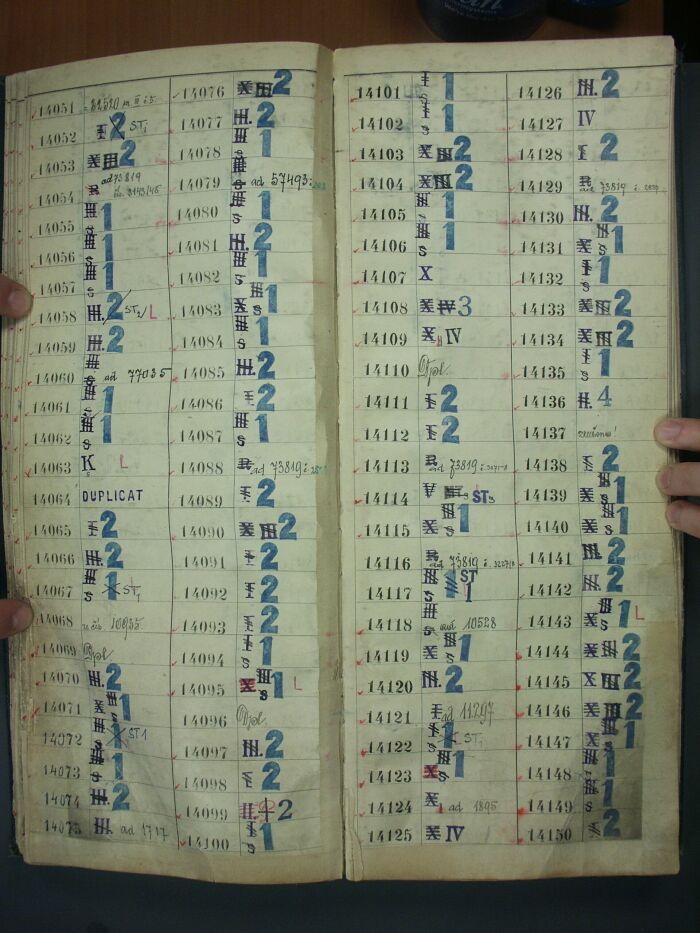 14051
14052 I 2 ST1
14053 X III 2
14054 R ad 73819
14055 III s 1
14056 III s 1
14057 III s 1
14058 III. 2 ST2/L
14059 III. 2
14060 III s ad 77035
14061 III s 1
14062 III s 1
14063 K L
14064 DUPLICAT
14065 I 2
14066 III. 2
14067 III s 1 ST1
14068 10935
14069 Dpl.
14070 III. 2
14071 X III s 1
14072 1 ST1
14073 III s 1
14074 III. 2
14075 III. ad 1717
14076 X III 2
14077 III. 2
14078 III s 1
14079 III s ad 57493
14080 III s 1
14081 III. 2
14082 III s 1
14083 X III s 1
14084 III s 1
14085 III. 2
14086 I 2
14087 III s 1
14088 R ad 73819
14089 I 2
14090 X III 2
14091 I 2
14092 I 2
14093 I 2
14094 I s 1
14095 X III s 1 L
14096 Dpl.
14097 III. 2
14098 I 2
14099 II. 2
14100 I s 1
14101 I s 1
14102 I s 1
14103 X III 2
14104 X III 2
14105 III s 1
14106 III s 1
14107 X
14108 X IV 3
14109 X IV
14110 Dpl.
14111 I 2
14112 I 2
14113 R ad 73819
14114 V III s ST3
14115 X III s 1
14116 R ad 73819
14117 III s ST 1
14118 III s 10528
14119 X III s 1
14120 III. 2
14121 I ad 11297
14122 I s 1 ST1
14123 X III s 1
14124 X ad 1895
14125 X IV
14126 III. 2
14127 IV
14128 I 2
14129 R ad 73819
14130 III. 2
14131 X III s 1
14132 I s 1
14133 X III 2
14134 X III 2
14135 I s 1
14136 II. 4
14137
14138 I 2
14139 X III s 1
14140 X III s 1
14141 III. 2
14142 III. 2
14143 X III s 1 L
14144 X III 2
14145 X III 2
14146 X III 2
14147 X III s 1
14148 III s 1
14149 III s 1
14150 2